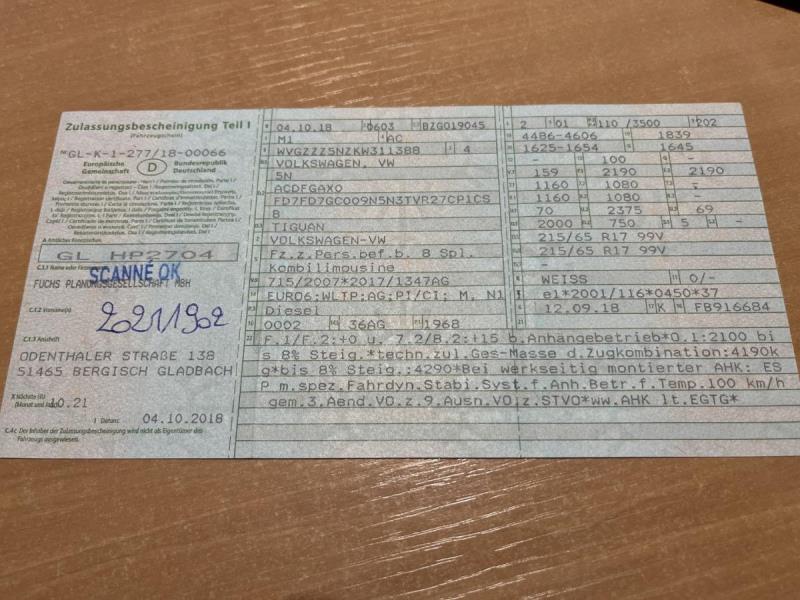 Zulassungsbescheinigung Teil I
(Fahrzeugschein)
Nr. GL-K-1-277/18-00066
Europäische Gemeinschaft
D
Bundesrepublik Deutschland
A Amtliches Kennzeichen
GL HP2704
C.1.1 Name oder Firmenname
SCANNE OK
FUCHS PLANUNGSGESELLSCHAFT MBH
C.1.2 Vorname(n)
202111902
C.1.3 Anschrift
ODENTHALER STRAßE 138
51465 BERGISCH GLADBACH
X Nächste HU (Monat und Jahr)
10.21
I Datum:
04.10.2018
C.4c Der Inhaber der Zulassungsbescheinigung wird nicht als Eigentümer des Fahrzeugs ausgewiesen.
04.10.18 0603 BZG019045
M1 AC
WVGZZZ5NZKW311388 4
VOLKSWAGEN, VW
5N
ACDFGAX0
TIGUAN
VOLKSWAGEN-VW
Fz.z.Pers.bef.b. 8 Spl.
Kombilimousine
715/2007*2017/1347AG
EURO6;WLTP;AG;PI/CI; M, N1
Diesel
0002 36AG 1968
2 01 110 /3500 202
4486-4606 1839
1625-1654 1645
- 100 -
159 2190 2190
1160 1080 -
1160 1080 -
70 2375 69
2000 750 5 -
215/65 R17 99V
215/65 R17 99V
-
WEISS 0/-
e1*2001/116*0450*37
12.09.18 K FB916684
F.1/F.2:+0 u. 7.2/8.2:+15 b.Anhängebetrieb*O.1:2100 bi
s 8% Steig.*techn.zul.Ges-Masse d.Zugkombination:4190k
g*bis 8% Steig.:4290*Bei werkseitig montierter AHK: ES
P m.spez.Fahrdyn.Stabi.Syst.f.Anh.Betr.f.Temp.100 km/h
gem.3.Aend.VO.z.9.Ausn.VO.z.STVO*ww.AHK lt.EGTG*